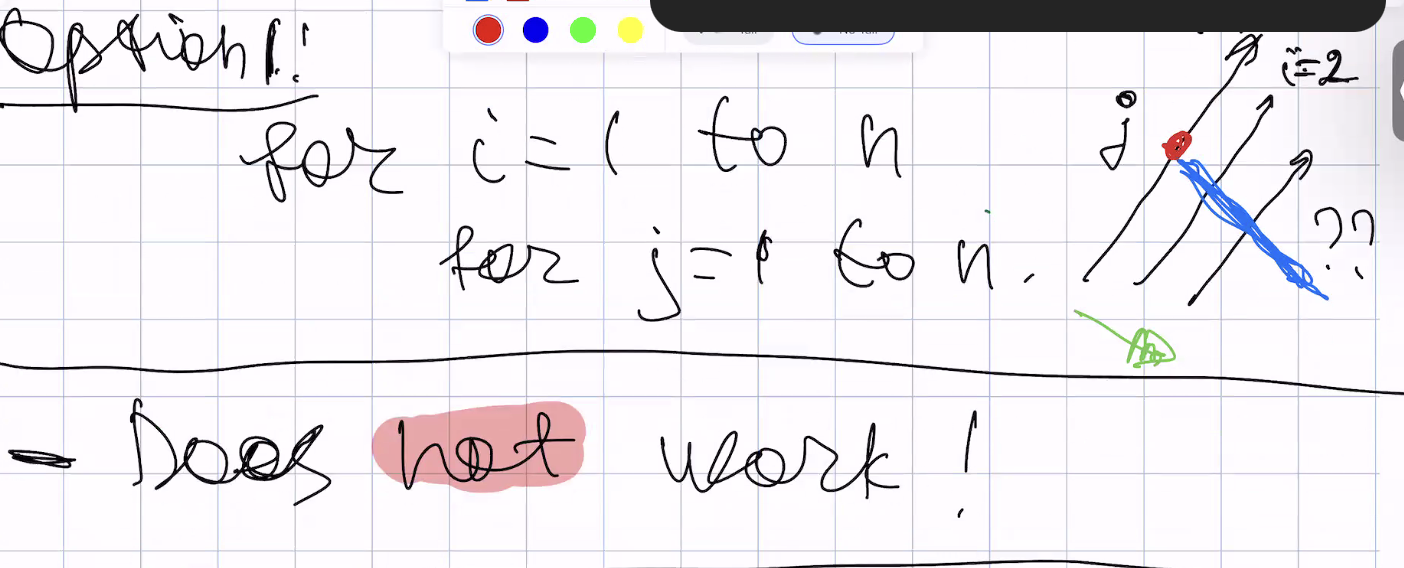 Option 1:
for i=1 to n
for j=1 to n.
i=2
j
??
- Does not work!